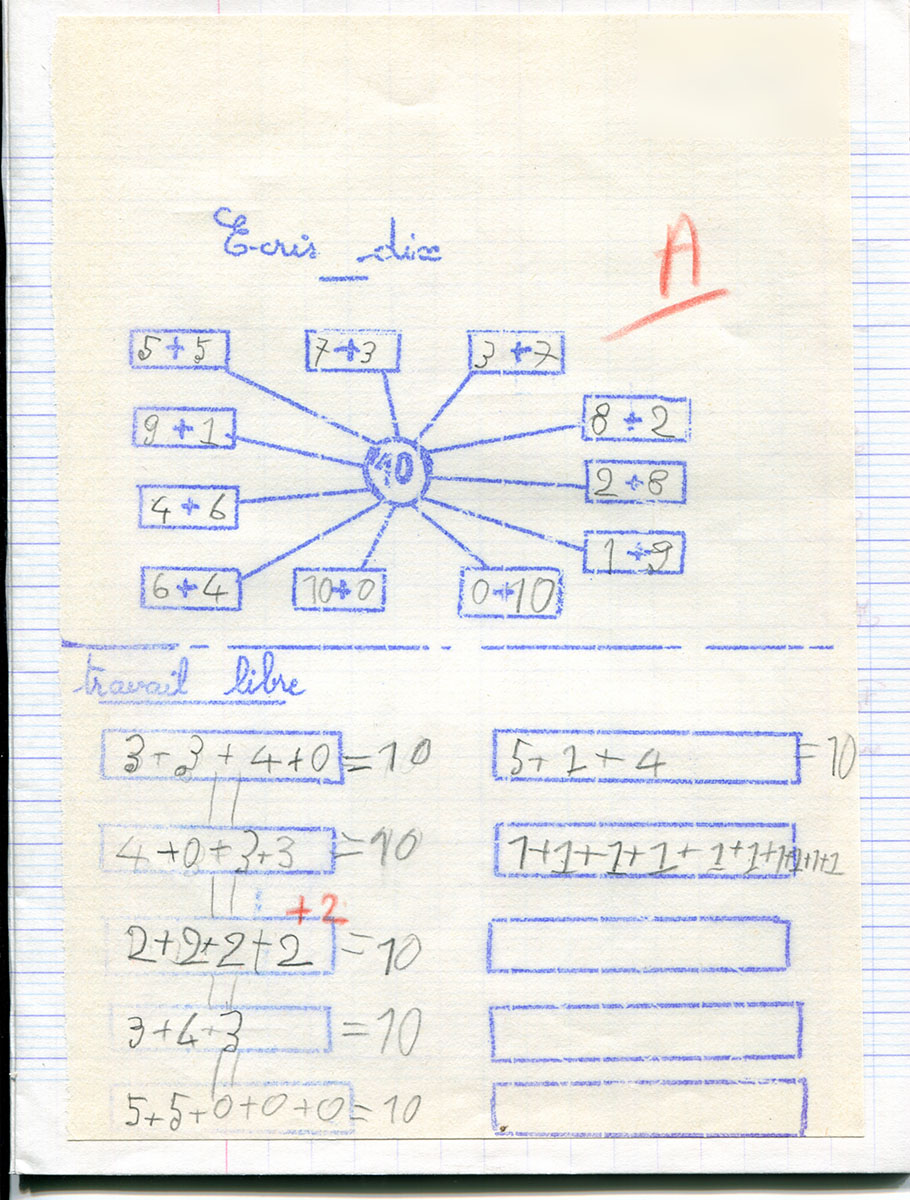 Ecris dix
A
5+5 7+3 3+7
9+1 8+2
10
4+6 2+8
1+9
6+4 10+0 0+10
travail libre
3+3+4+0=10 5+1+4=10
4+0+3+3=10 1+1+1+1+1+1+1+1+1+1
+2
2+2+2+2=10
3+4+3=10
5+5+0+0+0=10